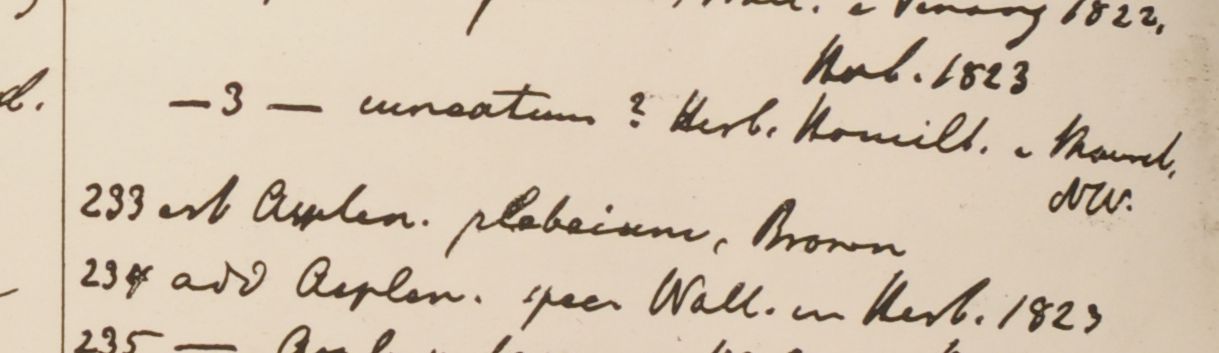 Wall. e Penang 1822,
Herb. 1823
d.
— 3 — cuneatum ? Herb. Hamilt. e
NW.
233 est Asplen. plebeium, Brown
234 add Asplen. spec. Wall. in Herb. 1823
235 —